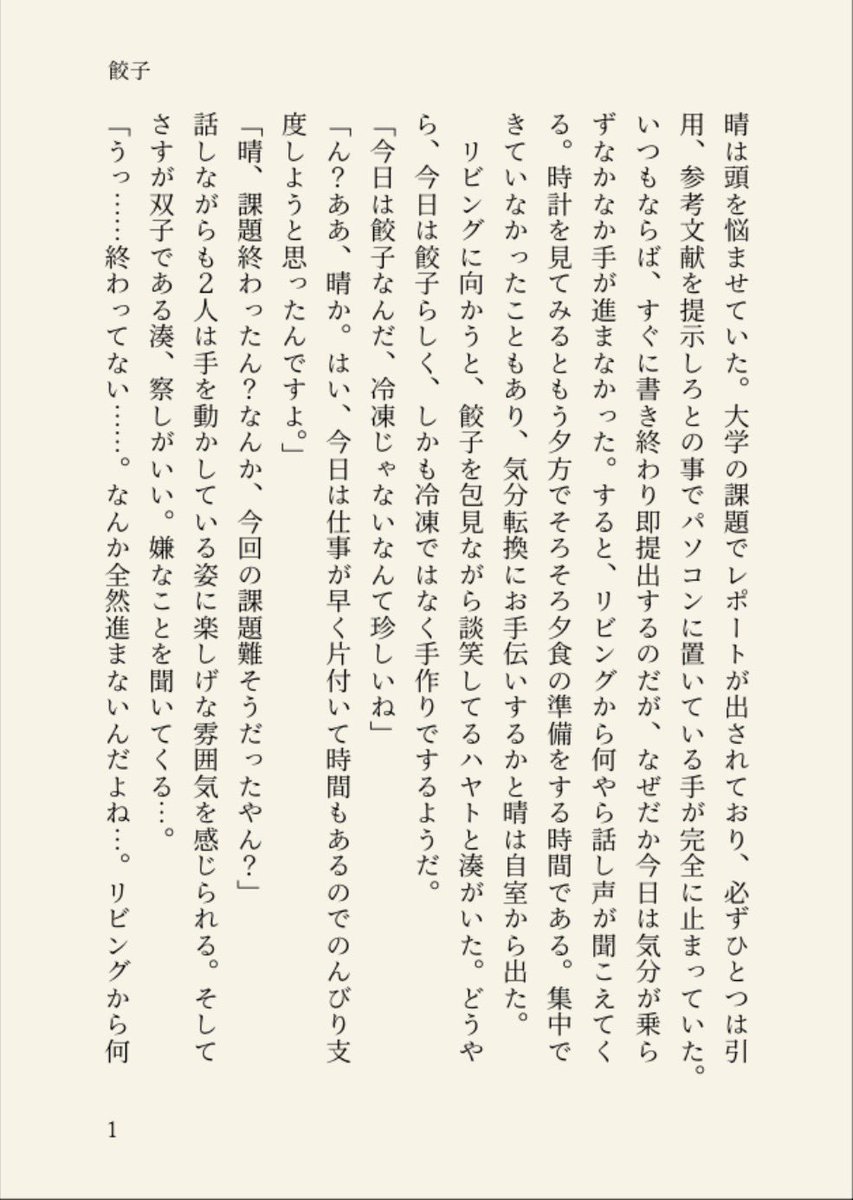 餃子
晴は頭を悩ませていた。大学の課題でレポートが出されており、必ずひとつは引
用、参考文献を提示しろとの事でパソコンに置いている手が完全に止まっていた。
いつもならば、すぐに書き終わり即提出するのだが、なぜだか今日は気分が乗ら
ずなかなか手が進まなかった。すると、リビングから何やら話し声が聞こえてく
る。時計を見てみるともう夕方でそろそろ夕食の準備をする時間である。集中で
きていなかったこともあり、気分転換にお手伝いするかと晴は自室から出た。
リビングに向かうと、餃子を包見ながら談笑してるハヤトと湊がいた。どうや
ら、今日は餃子らしく、しかも冷凍ではなく手作りでするようだ。
「今日は餃子なんだ、冷凍じゃないなんて珍しいね」
「ん？ああ、晴か。はい、今日は仕事が早く片付いて時間もあるのでのんびり支
度しようと思ったんですよ。」
「晴、課題終わったん？なんか、今回の課題難そうだったやん？」
話しながらも２人は手を動かしている姿に楽しげな雰囲気を感じられる。そして
さすが双子である湊、察しがいい。嫌なことを聞いてくる…。
「うっ……終わってない……。なんか全然進まないんだよね…。リビングから何
1